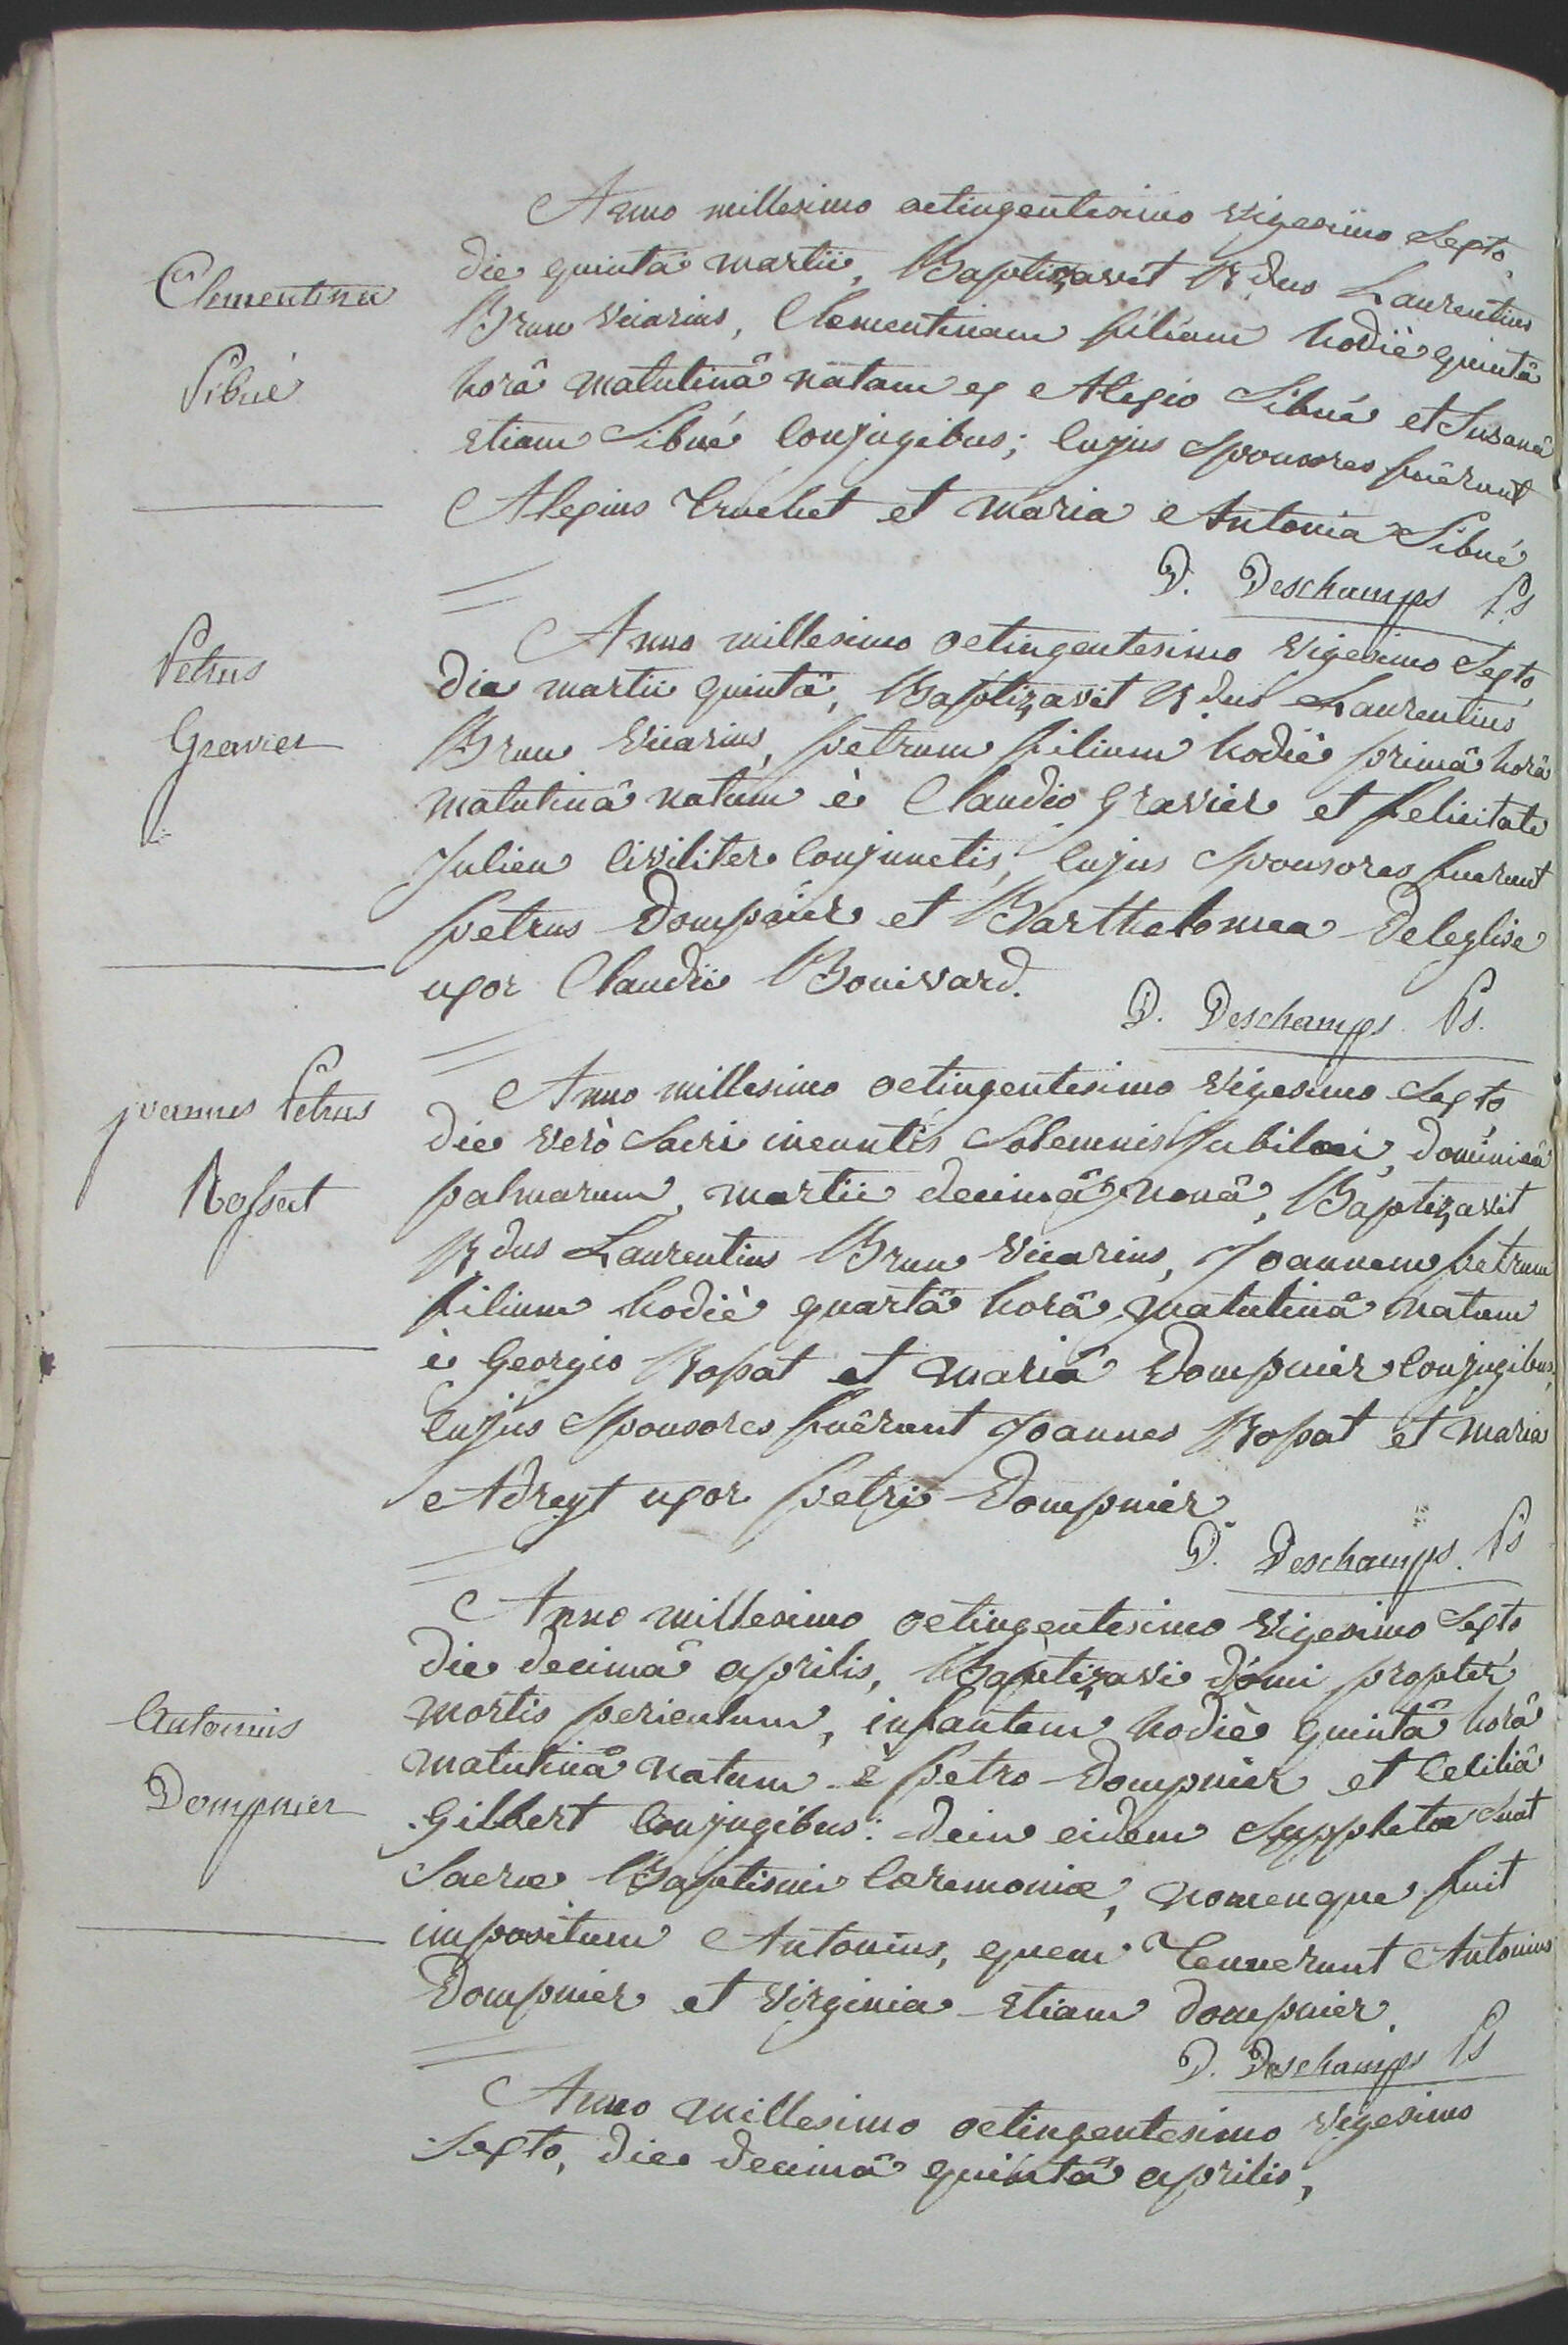 Anno millesimo octingentesimo vigesimo sexto,
Clementina
die quintâ martii, Baptizavit Rdus Laurentius
Brun vicarius, Clementinam filiam hodiè quintâ
Sibué
horâ matutinâ natam ex Alexio Sibué et Susanâ
etiam Sibué conjugibus; cujus sponsores fuêrunt
Alexius Truchet et maria Antonia Sibué
D. Deschamps Ps
Petrus
Anno millesimo octingentesimo vigesimo sexto,
die martii quintâ, Baptizavit Rdus Laurentius
Gravier
Brun vicarius, petrum filium hodiè primâ horâ
matutinâ natum è Claudio gravier et felicitate
Julien civiliter conjunctis; cujus sponsores fuerunt
petrus Dompnier et Barthelomea Deleglise
uxor Claudii Bonivard.
D. Deschamps. Ps.
joannes Petrus
Anno millesimo octingentesimo vigesimo sexto,
die verò sacri ineuntis solemnis Jubilaei, dominicâ
Rossat
palmarum, martii decimâ nonâ, Baptizavit
Rdus Laurentius Brun vicarius, Joannem petrum
filium hodiè quartâ horâ matutinâ natum
è Georgio Rossat et mariâ Dompnier conjugibus,
cujus sponsores fuêrunt Joannes Rossat et maria
Adreyt uxor petri Dompnier.
D. Deschamps. Ps
Anno millesimo octingentesimo vigesimo sexto,
die decimâ aprilis, Baptizavi domi propter
Antonius
mortis periculum, infantem hodiè quintâ horâ
matutinâ natum è petro Dompnier et Ceciliâ
Dompnier
Gilbert conjugibus: dein eidem suppletae sunt
sacrae Baptismi caeremoniae, nomenque fuit
impositum Antonius, quem tenuerunt Antonius
Dompnier et virginia etiam dompnier.
D. Deschamps Ps
Anno millesimo octingentesimo vigesimo
sexto, die decimâ quintâ aprilis,